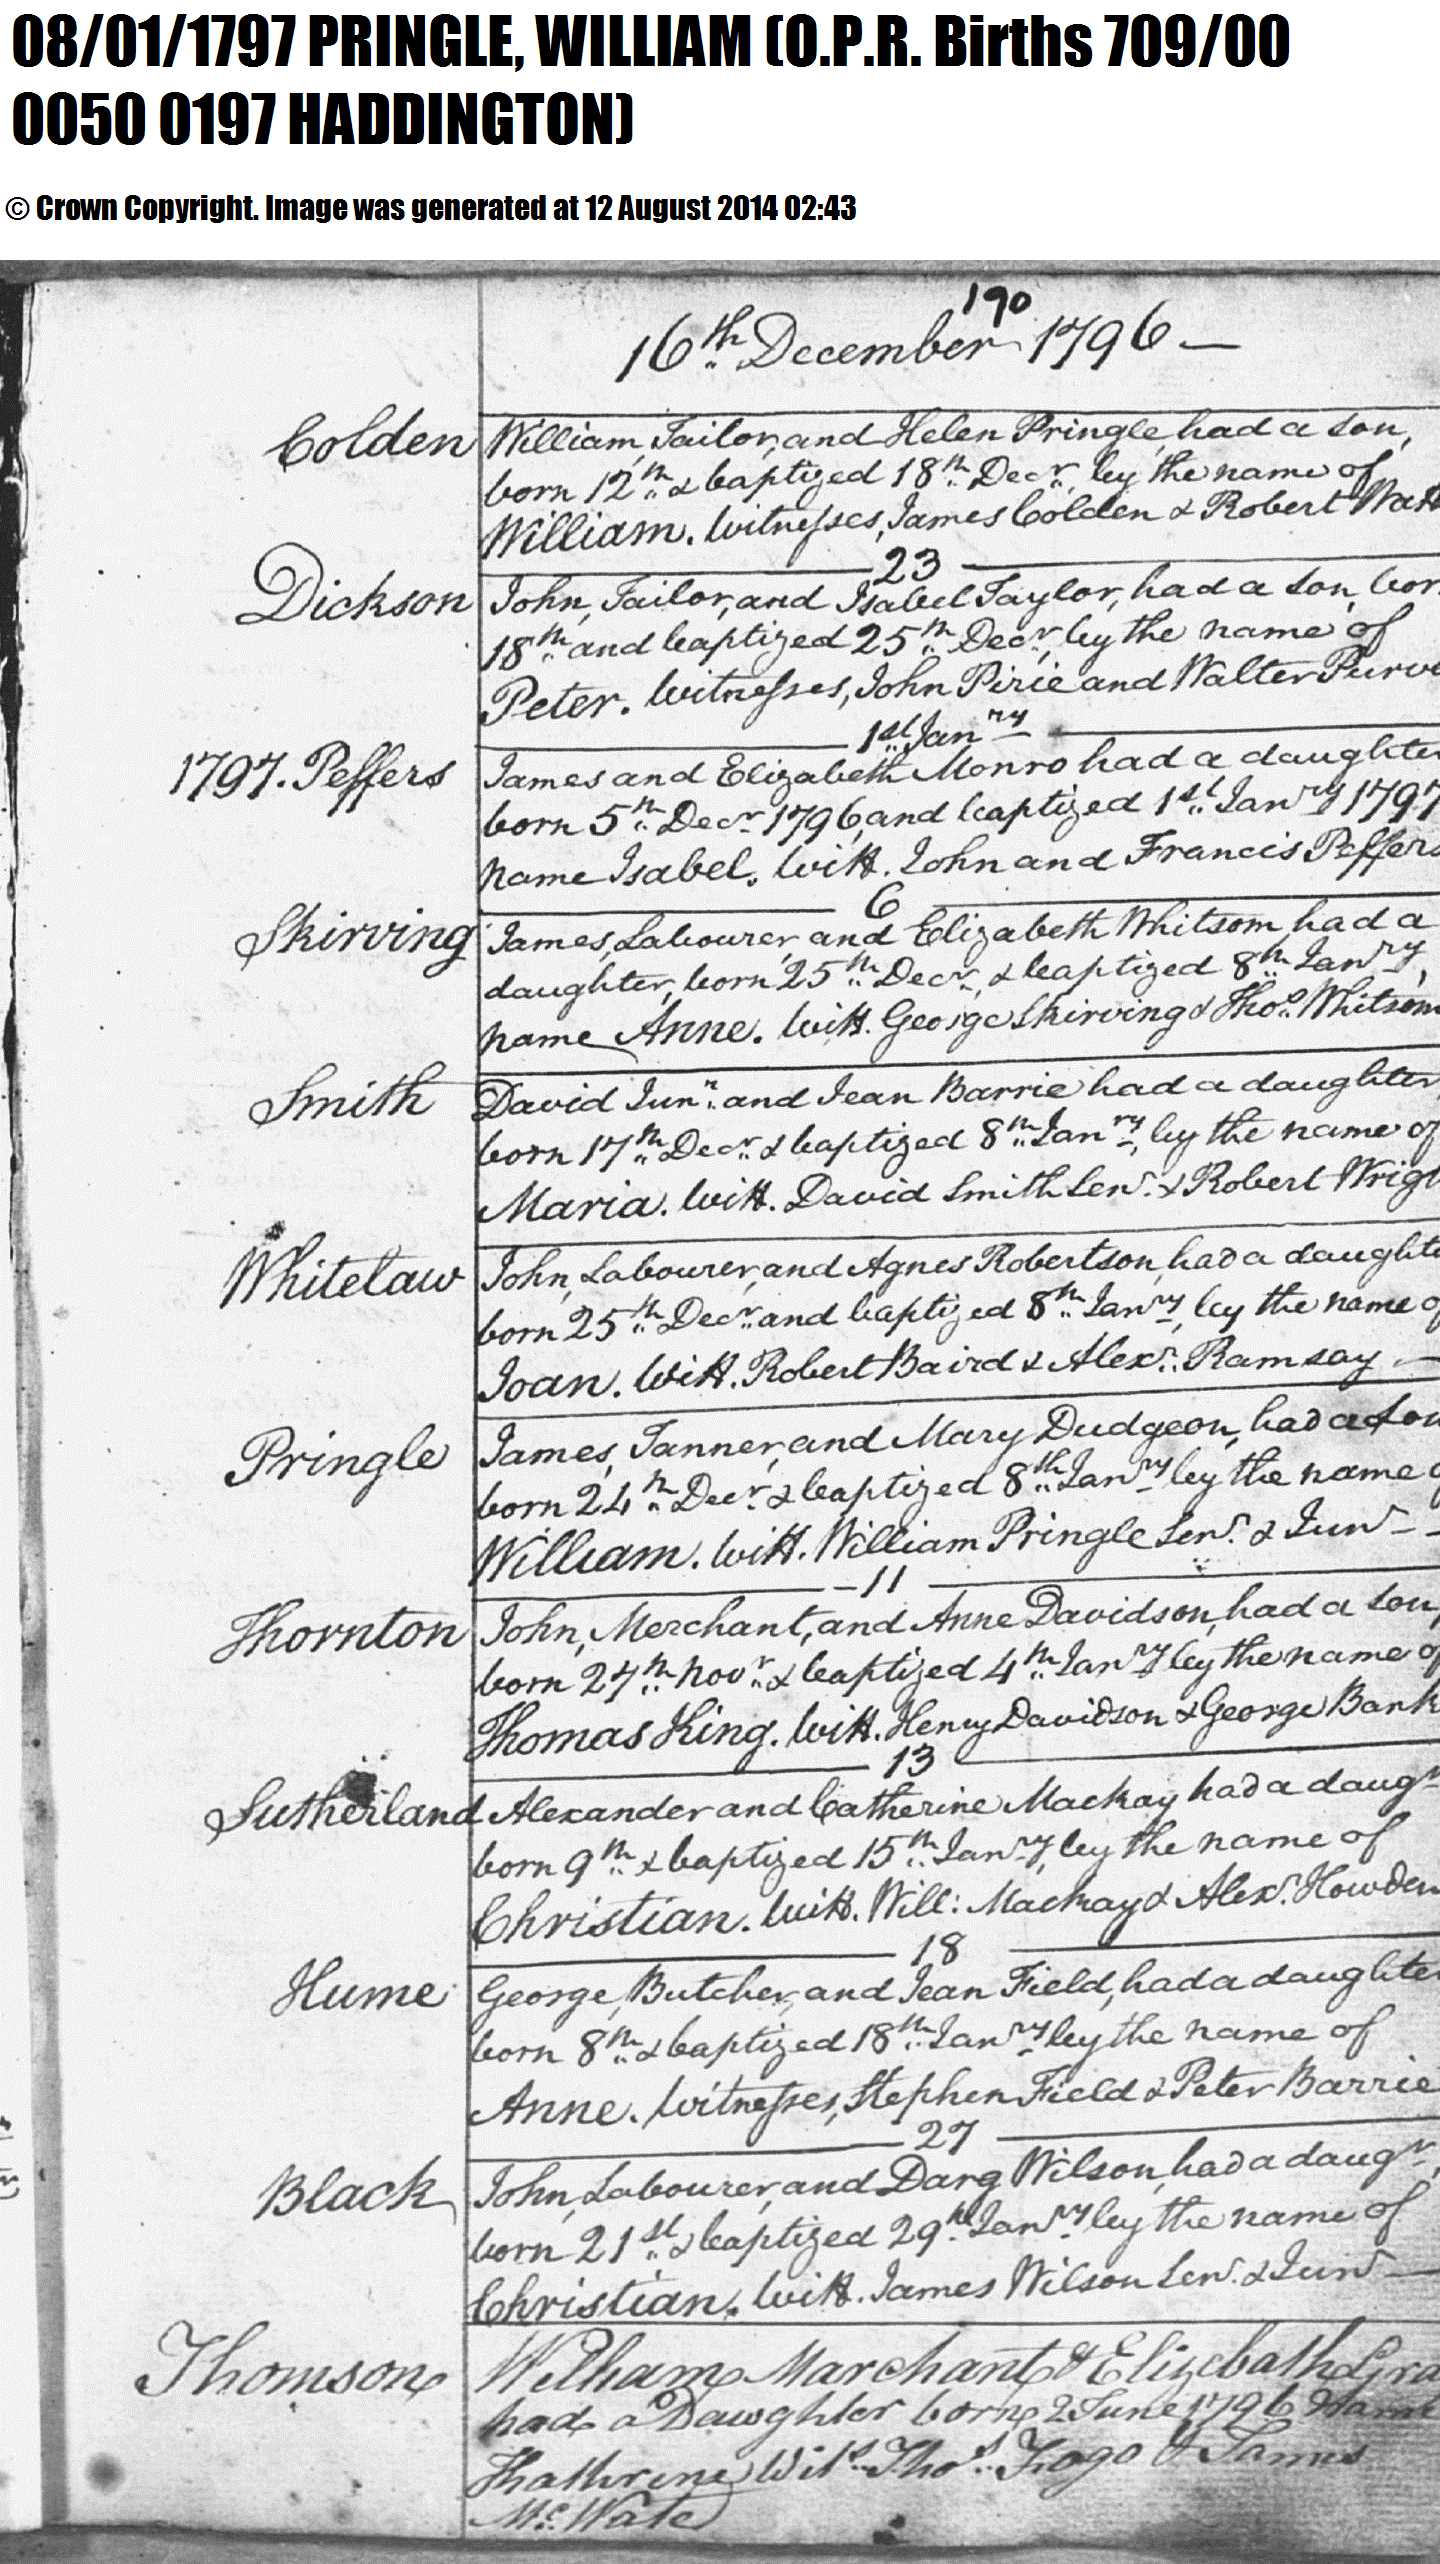 08/01/1797 PRINGLE, WILLIAM (O.P.R. Births 709/00
0050 0197 HADDINGTON)
© Crown Copyright. Image was generated at 12 August 2014 02:43
190
16th December 1796 —
Colden William, Tailor, and Helen Pringle, had a son,
born 12th & baptized 18th Decr, by the name of
William. Witnesses, James Colden & Robert
23
Dickson John, Tailor, and Isabel Taylor, had a son, bor
18th and baptized 25th Decr, by the name of
Peter. Witnesses, John Pirie and Walter Purve
1st Janry
1797. Peffers James and Elizabeth Monro had a daughter
born 5th Decr 1796, and baptized 1st Janry 1797
name Isabel. Witt. John and Francis Peffers
6
Skirving James, Labourer, and Elizabeth Whitsom, had a
daughter, born 25th Decr, & baptized 8th Janry,
name Anne. Witt. George Skirving & Thos. Whitsom
Smith David Junr. and Jean Barrie had a daughter,
born 17th Decr. & baptized 8th Janry, by the name of
Maria. Witt. David Smith Senr. & Robert Wrigh
Whitelaw John, Labourer, and Agnes Robertson, had a daughte
born 25th Decr. and baptized 8th Janry, by the name of
Joan. Witt. Robert Baird & Alexr. Ramsay —
Pringle James, Tanner, and Mary Dudgeon, had a son
born 24th Decr. & baptized 8th Janry by the name o
William. Witt. William Pringle Senr. & Junr — —
— 11
Thornton John, Merchant, and Anne Davidson, had a son,
born 27th Novr. & baptized 4th Janry by the name of
Thomas King. Witt. Henry Davidson & George Bank
13
Sutherland Alexander and Catherine Mackay had a daugr
born 9th & baptized 15th Janry, by the name of
Christian. Witt. Will: Mackay & Alexr. Howden
18
Hume George, Butcher, and Jean Field, had a daughter
born 8th & baptized 18th Janry by the name of
Anne. Witnesses, Stephen Field & Peter Barrie
27
Black John, Labourer, and Wilson, had a daugr,
born 21st & baptized 29th Janry by the name of
Christian. Witt. James Wilson Senr. & Junr —
Thomson William Marchant & Elizebath Gra
had a Dawghter born 2 June 1796
Kathrene Wits. Thos. & James
Mc.